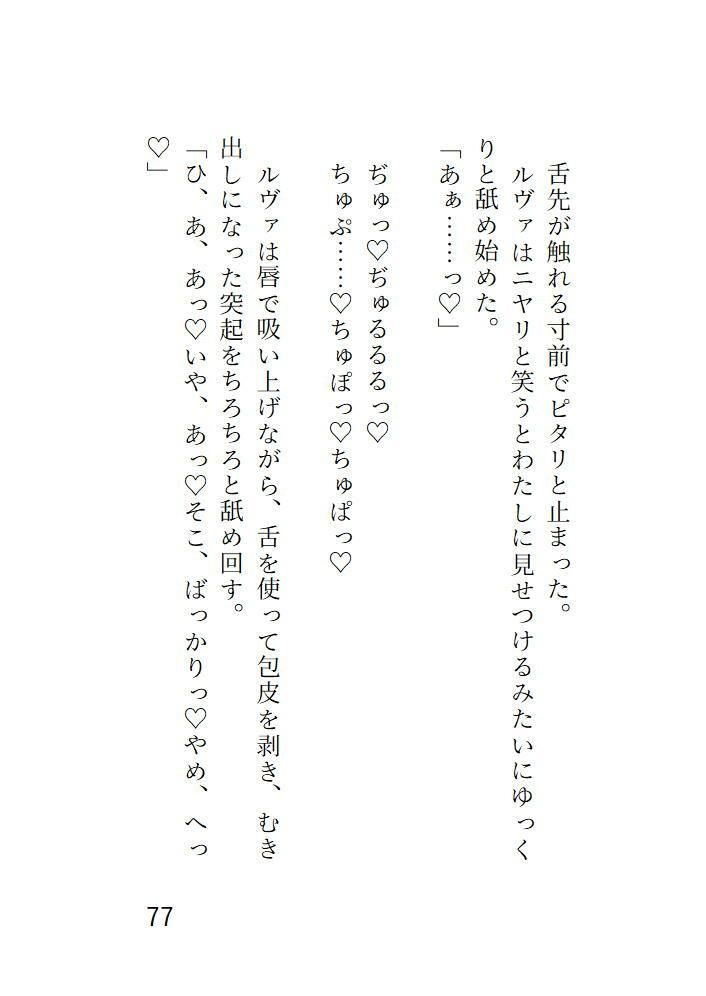 舌先が触れる寸前でピタリと止まった。
ルヴァはニヤリと笑うとわたしに見せつけるみたいにゆっく
りと舐め始めた。
「あぁ……っ♡」
ぢゅっ♡ぢゅるるるっ♡
ちゅぷ……♡ちゅぽっ♡ちゅぱっ♡
ルヴァは唇で吸い上げながら、舌を使って包皮を剥き、むき
出しになった突起をちろちろと舐め回す。
「ひ、あ、あっ♡いや、あっ♡そこ、ばっかりっ♡やめ、へっ
♡」
77